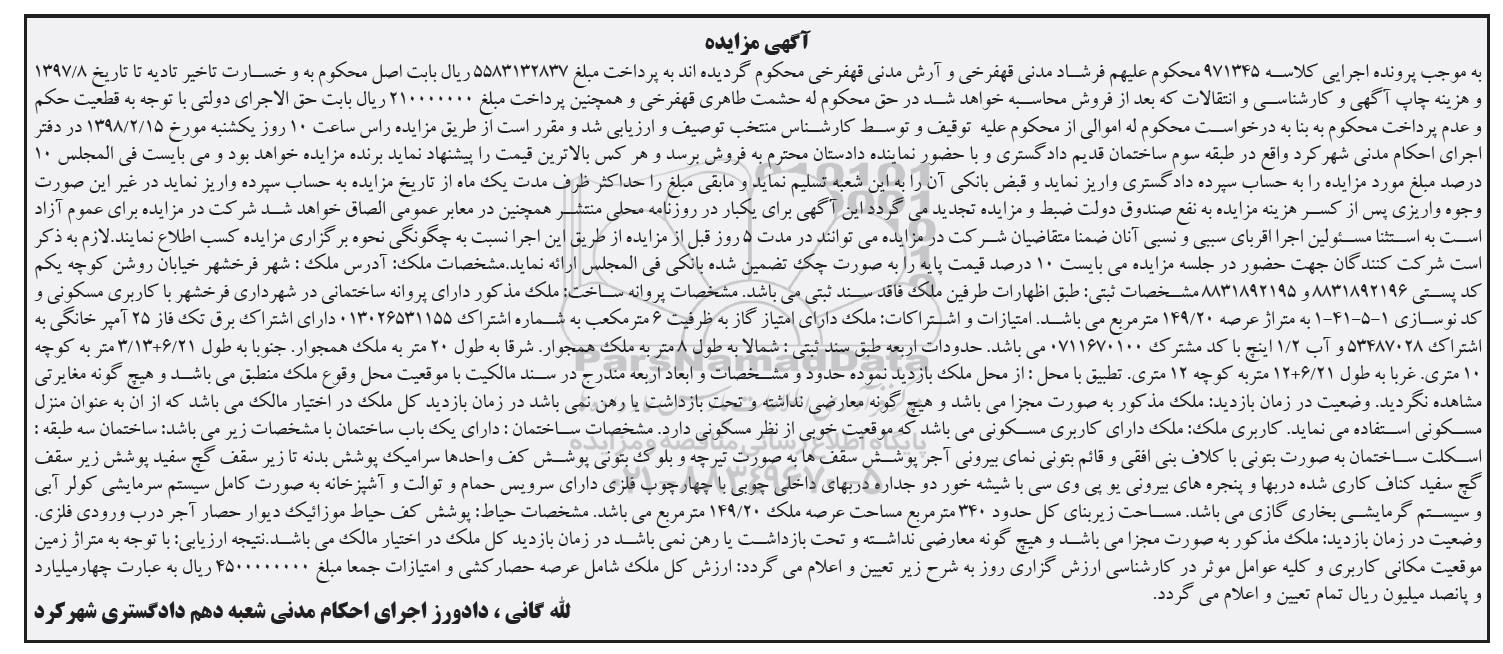 آگهی مزایده
به موجب پرونده اجرایی کلاسه ۹۷۱۳۴۵ محکوم علیهم فرشاد مدنی قهفرخی و آرش مدنی قهفرخی محکوم گردیده اند به پرداخت مبلغ ۵۵۸۳۱۳۲۸۳۷ ریال بابت اصل محکوم به و خسارت تاخیر تادیه تا تاریخ ۱۳۹۷/۸
و هزینه چاپ آگهی و کارشناسی و انتقالات که بعد از فروش محاسبه خواهد شد در حق محکوم له حشمت طاهری قهفرخی و همچنین پرداخت مبلغ ۲۱۰۰۰۰۰۰۰ ریال بابت حق الاجرای دولتی با توجه به قطعیت حکم
و عدم پرداخت محکوم به بنا به درخواست محکوم له اموالی از محکوم علیه توقیف و توسط کارشناس منتخب توصیف و ارزیابی شد و مقرر است از طریق مزایده راس ساعت ۱۰ روز یکشنبه مورخ ۱۳۹۸/۲/۱۵ در دفتر
اجرای احکام مدنی شهرکرد واقع در طبقه سوم ساختمان قدیم دادگستری و با حضور نماینده دادستان محترم به فروش برسد و هر کس بالاترین قیمت را پیشنهاد نماید برنده مزایده خواهد بود و می بایست فی المجلس ۱۰
درصد مبلغ مورد مزایده را به حساب سپرده دادگستری واریز نماید و قبض بانکی آن را به این شعبه تسلیم نماید و مابقی مبلغ را حداکثر ظرف مدت یک ماه از تاریخ مزایده به حساب سپرده واریز نماید در غیر این صورت
وجوه واریزی پس از کسر هزینه مزایده به نفع صندوق دولت ضبط و مزایده تجدید می گردد این آگهی برای یکبار در روزنامه محلی منتشر همچنین در معابر عمومی الصاق خواهد شد شرکت در مزایده برای عموم آزاد
است به استثنا مسئولین اجرا اقربای سببی و نسبی آنان ضمنا متقاضیان شرکت در مزایده می توانند در مدت ۵ روز قبل از مزایده از طریق این اجرا نسبت به چگونگی نحوه برگزاری مزایده کسب اطلاع نمایند.لازم به ذکر
است شرکت کنندگان جهت حضور در جلسه مزایده می بایست ۱۰ درصد قیمت پایه را به صورت چک تضمین شده بانکی فی المجلس ارائه نماید.مشخصات ملک: آدرس ملک : شهر فرخشهر خیابان روشن کوچه یکم
کد پستی ۸۸۳۱۸۹۲۱۹۶ و ۸۸۳۱۸۹۲۱۹۵ مشخصات ثبتی: طبق اظهارات طرفین ملک فاقد سند ثبتی می باشد. مشخصات پروانه ساخت: ملک مذکور دارای پروانه ساختمانی در شهرداری فرخشهر با کاربری مسکونی و
کد نوسازی ۱-۵-۴۱-۱ به متراژ عرصه ۱۴۹/۲۰ مترمربع می باشد. امتیازات و اشتراکات: ملک دارای امتیاز گاز به ظرفیت ۶ مترمکعب به شماره اشتراک ۰۱۳۰۲۶۵۳۱۱۵۵ دارای اشتراک برق تک فاز ۲۵ آمپر خانگی به
اشتراک ۵۳۴۸۷۰۲۸ و آب ۱/۲ اینچ با کد مشترک ۰۷۱۱۶۷۰۱۰۰ می باشد. حدودات اربعه طبق سند ثبتی : شمالا به طول ۸ متر به ملک همجوار. شرقا به طول ۲۰ متر به ملک همجوار. جنوبا به طول ۶/۲۱+۳/۱۳ متر به کوچه
۱۰ متری. غربا به طول ۶/۲۱+۱۲ متربه کوچه ۱۲ متری. تطبیق با محل : از محل ملک بازدید نموده حدود و مشخصات و ابعاد اربعه مندرج در سند مالکیت با موقعیت محل وقوع ملک منطبق می باشد و هیچ گونه مغایرتی
مشاهده نگردید. وضعیت در زمان بازدید: ملک مذکور به صورت مجزا می باشد و هیچ گونه معارضی نداشته و تحت بازداشت یا رهن نمی باشد در زمان بازدید کل ملک در اختیار مالک می باشد که از ان به عنوان منزل
مسکونی استفاده می نماید. کاربری ملک: ملک دارای کاربری مسکونی می باشد که موقعیت خوبی از نظر مسکونی دارد. مشخصات ساختمان : دارای یک باب ساختمان با مشخصات زیر می باشد: ساختمان سه طبقه :
اسکلت ساختمان به صورت بتونی با کلاف بنی افقی و قائم بتونی نمای بیرونی آجر پوشش سقف ها به صورت تیرچه و بلوک بتونی پوشش کف واحدها سرامیک پوشش بدنه تا زیر سقف گچ سفید پوشش زیر سقف
گچ سفید کناف کاری شده دربها و پنجره های بیرونی یو پی وی سی با شیشه خور دو جداره دربهای داخلی چوبی با چهارچوب فلزی دارای سرویس حمام و توالت و آشپزخانه به صورت کامل سیستم سرمایشی کولر آبی
و سیستم گرمایشی بخاری گازی می باشد. مساحت زیربنای کل حدود ۳۴۰ مترمربع مساحت عرصه ملک ۱۴۹/۲۰ مترمربع می باشد. مشخصات حیاط: پوشش کف حیاط موزائیک دیوار حصار آجر درب ورودی فلزی.
وضعیت در زمان بازدید: ملک مذکور به صورت مجزا می باشد و هیچ گونه معارضی نداشته و تحت بازداشت یا رهن نمی باشد در زمان بازدید کل ملک در اختیار مالک می باشد.نتیجه ارزیابی: با توجه به متراژ زمین
موقعیت مکانی کاربری و کلیه عوامل موثر در کارشناسی ارزش گزاری روز به شرح زیر تعیین و اعلام می گردد: ارزش کل ملک شامل عرصه حصارکشی و امتیازات جمعا مبلغ ۴۵۰۰۰۰۰۰۰۰ ریال به عبارت چهارمیلیارد
و پانصد میلیون ریال تمام تعیین و اعلام می گردد.
لله گانی ، دادورز اجرای احکام مدنی شعبه دهم دادگستری شهرکرد
ParsNamadData
پایگاه اطلاع رسانی مناقصه و مزایده
۰۲۱-۸۸۳۴۹۶۷۰-۵